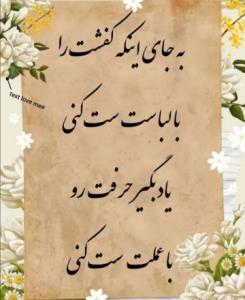 به جای اینکه کفشت را
با لباست ست کنی
یاد بگیر حرفت رو
با عملت ست کنی
text love mee